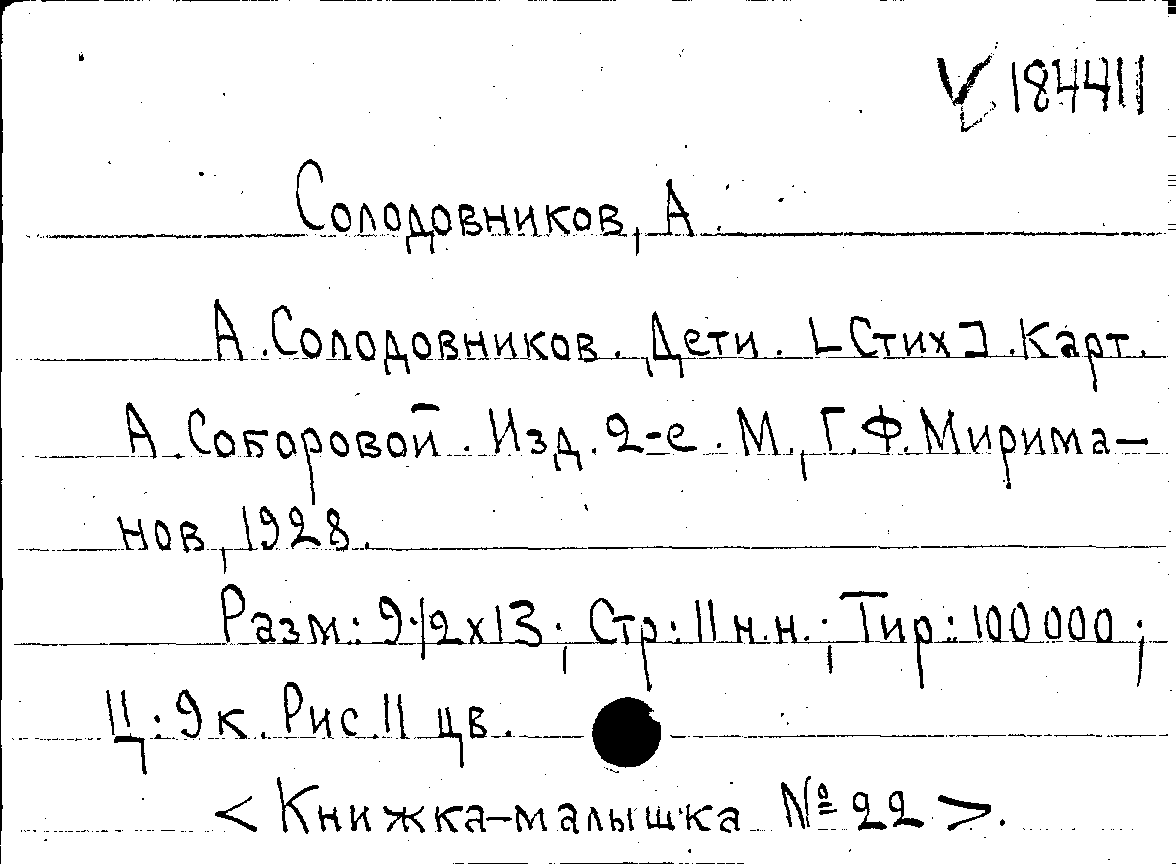 V 184411
Солодовников, А.
А. Солодовников. Дети. [Стих]. Карт.
А. Соборовой. Изд. 2-е. М., Г. Ф. Мирима-
нов, 1928.
Разм.: 9,2х13; Стр: 11 н.н.; Тир: 100 000;
Ц: 9 к. Рис. 11 цв.
<Книжка-малышка № 22>.